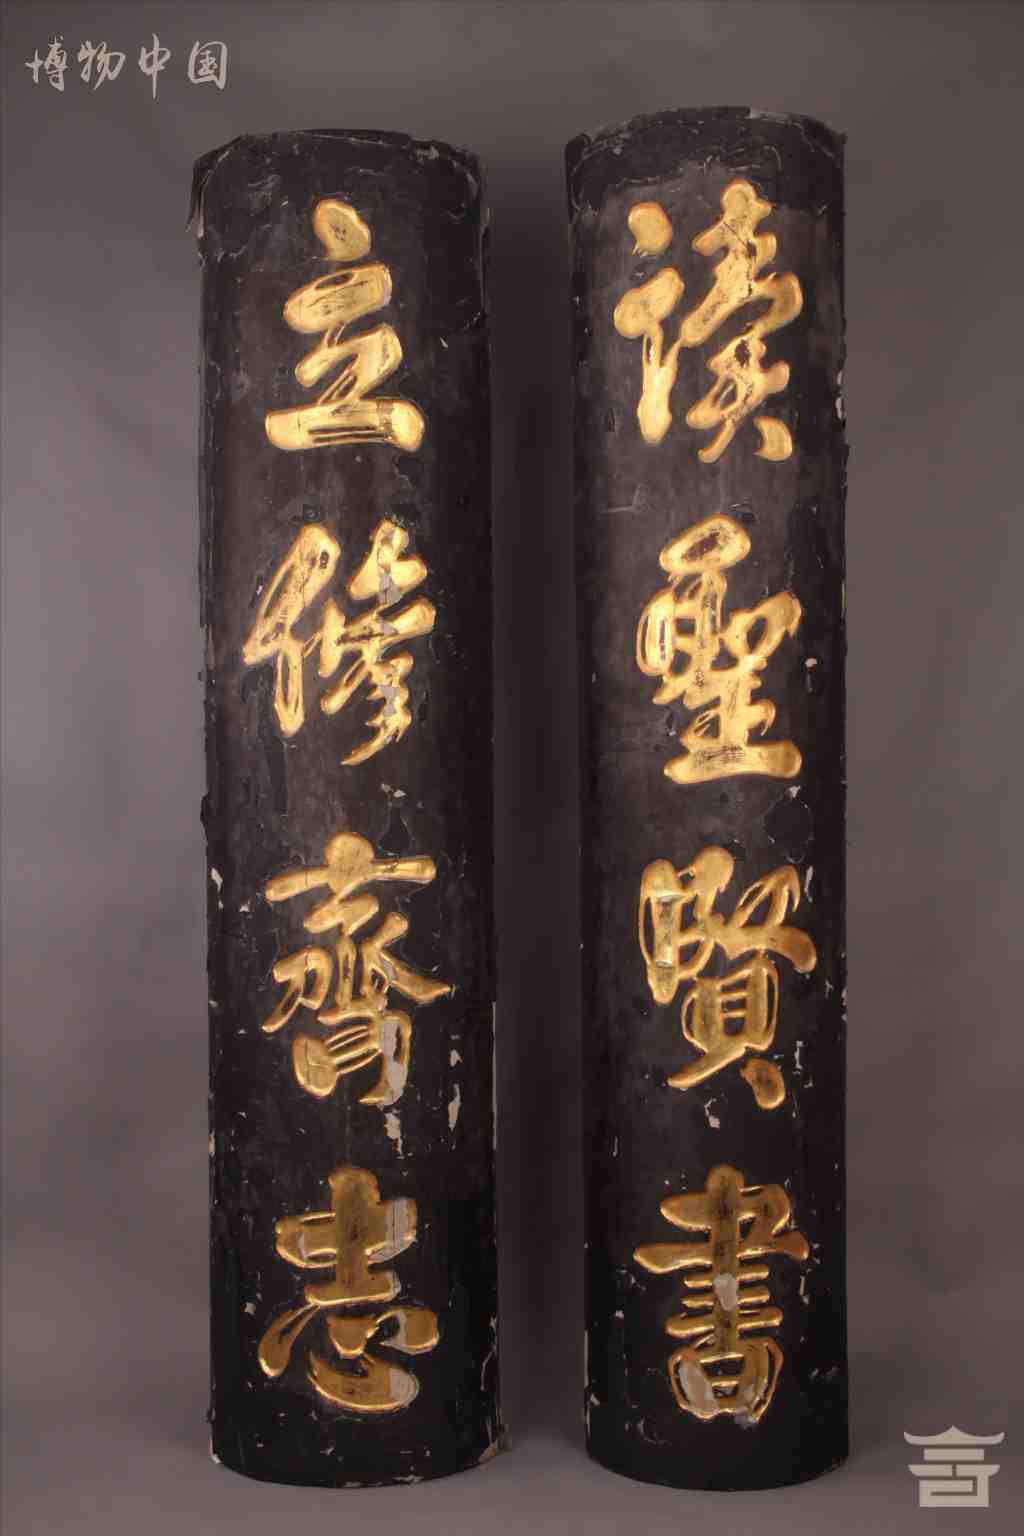 博物中国
讀聖賢書
立修齊志